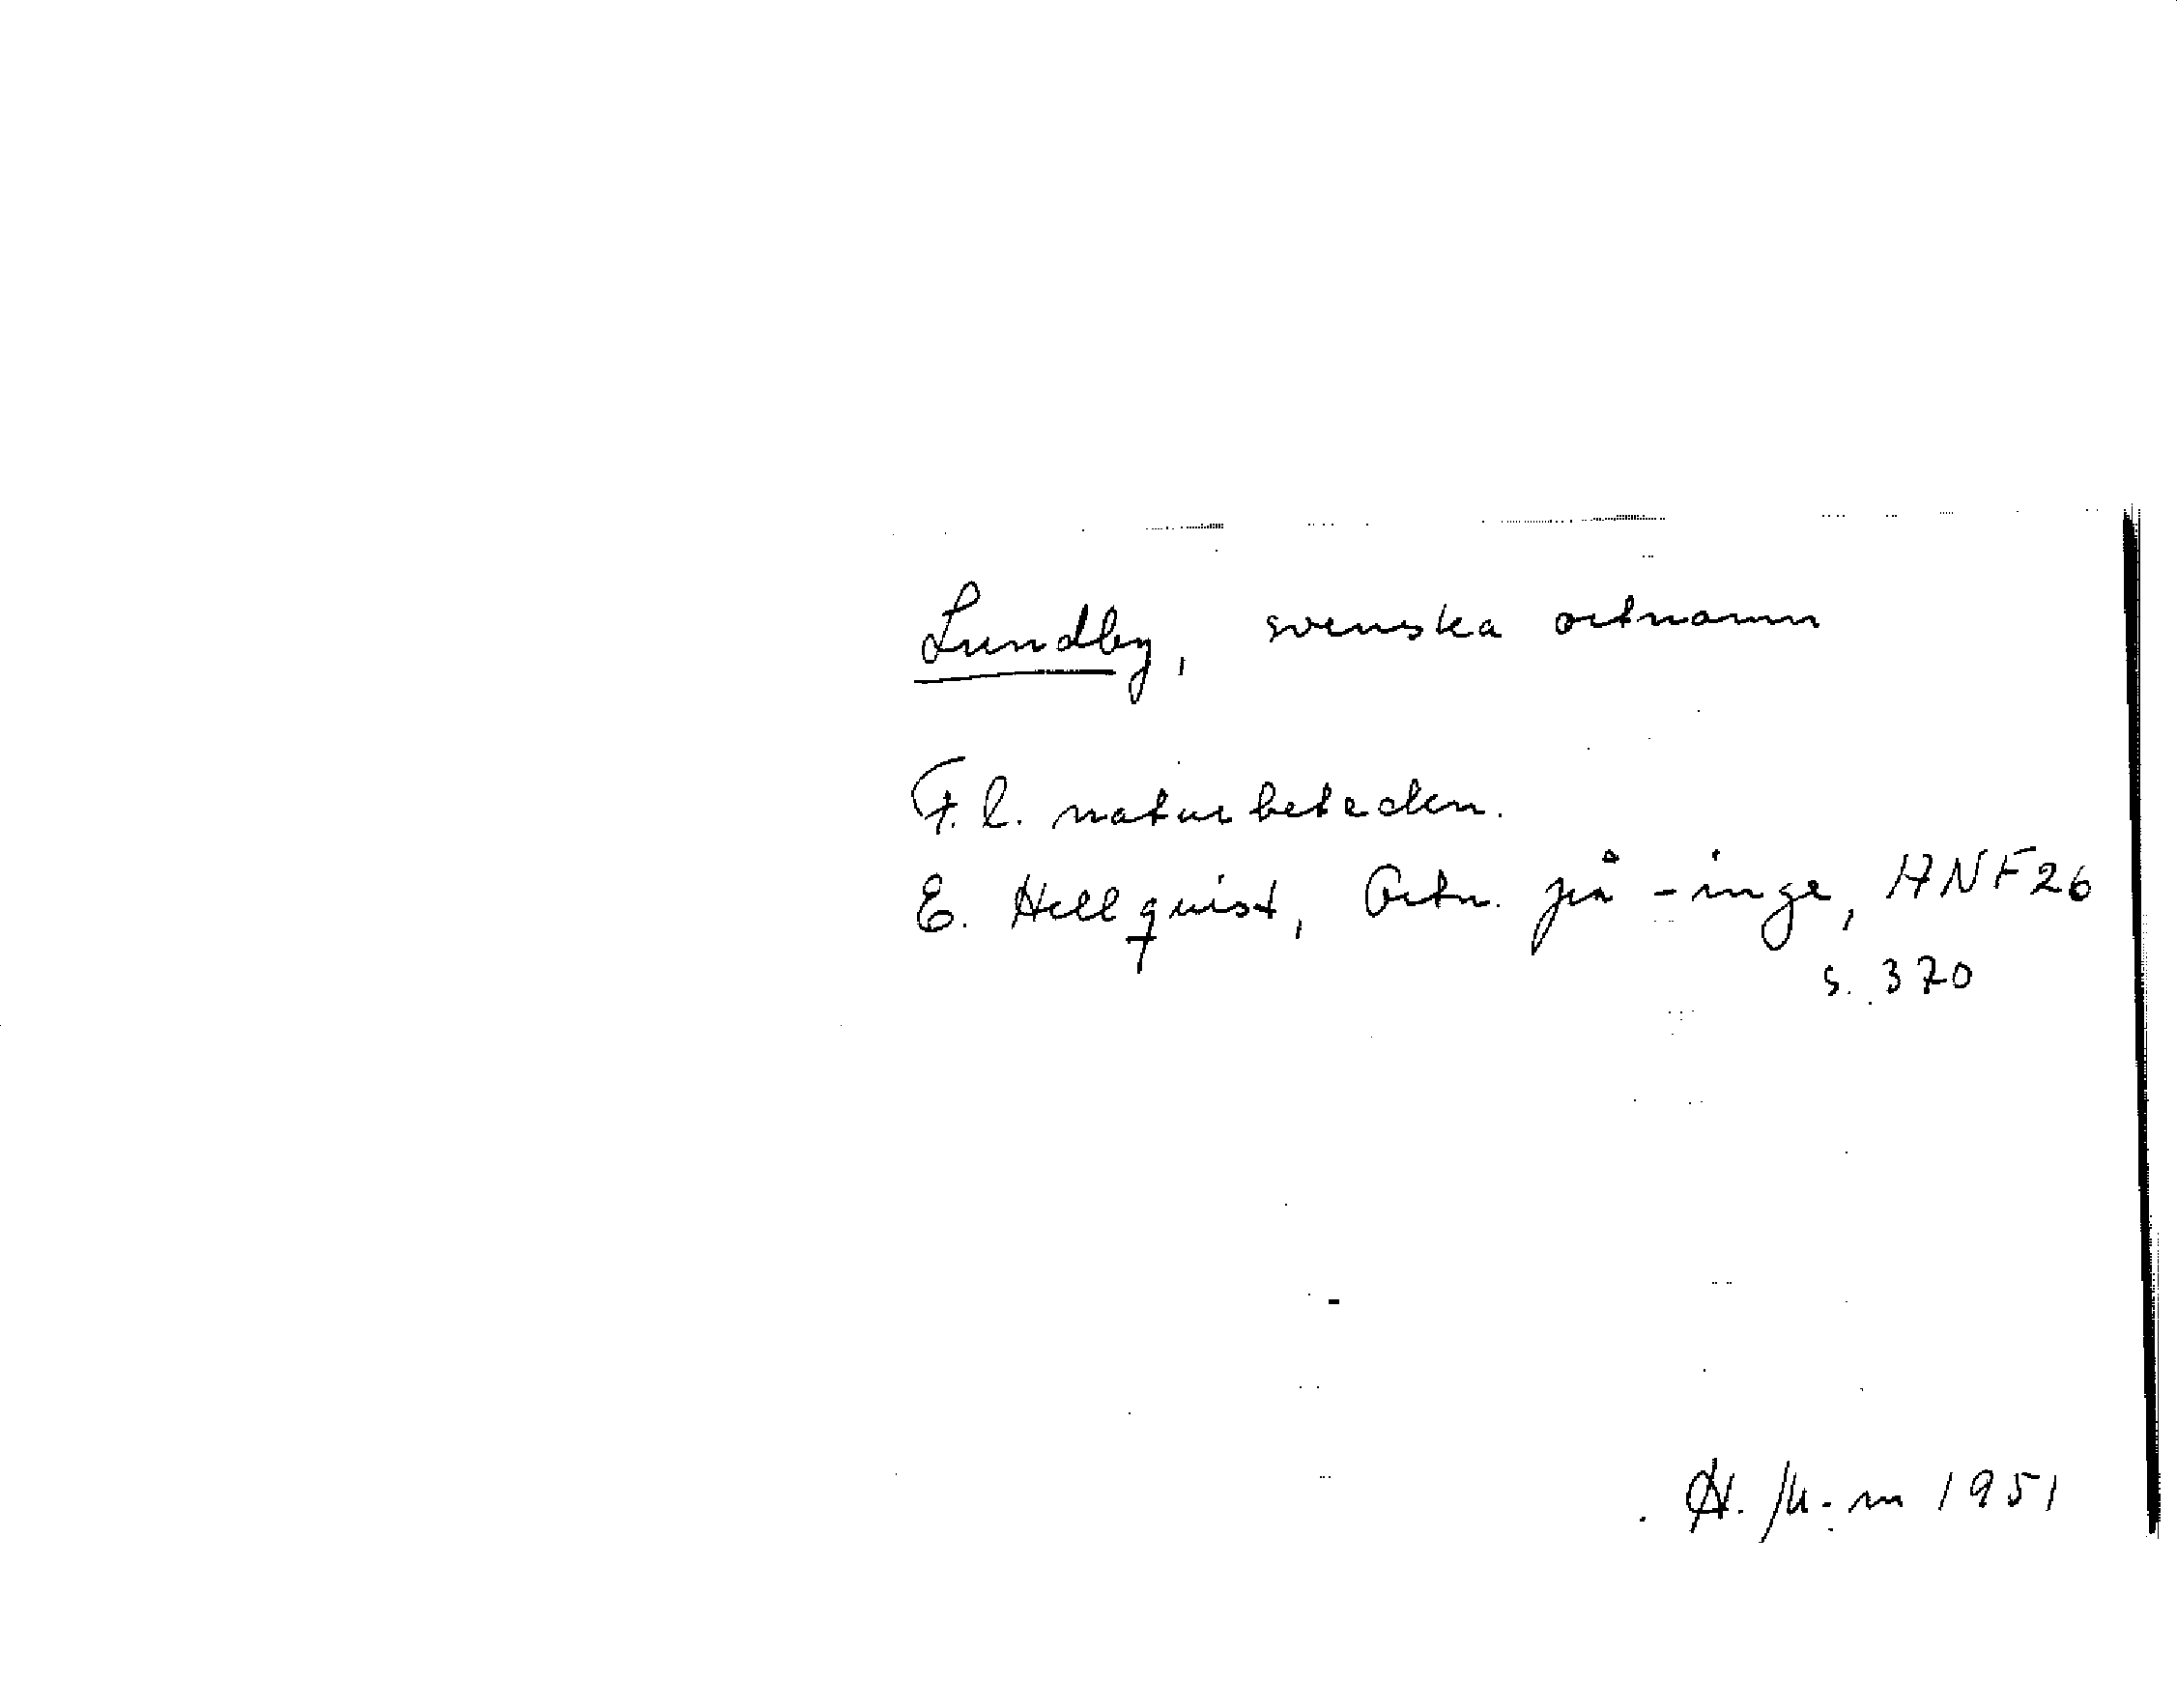 Lundby, svenska ortnamn
F. l. naturbeteckn.
E. Hellquist, Ortn. på -inge, ANF 26
s. 370
H. M-m 1951